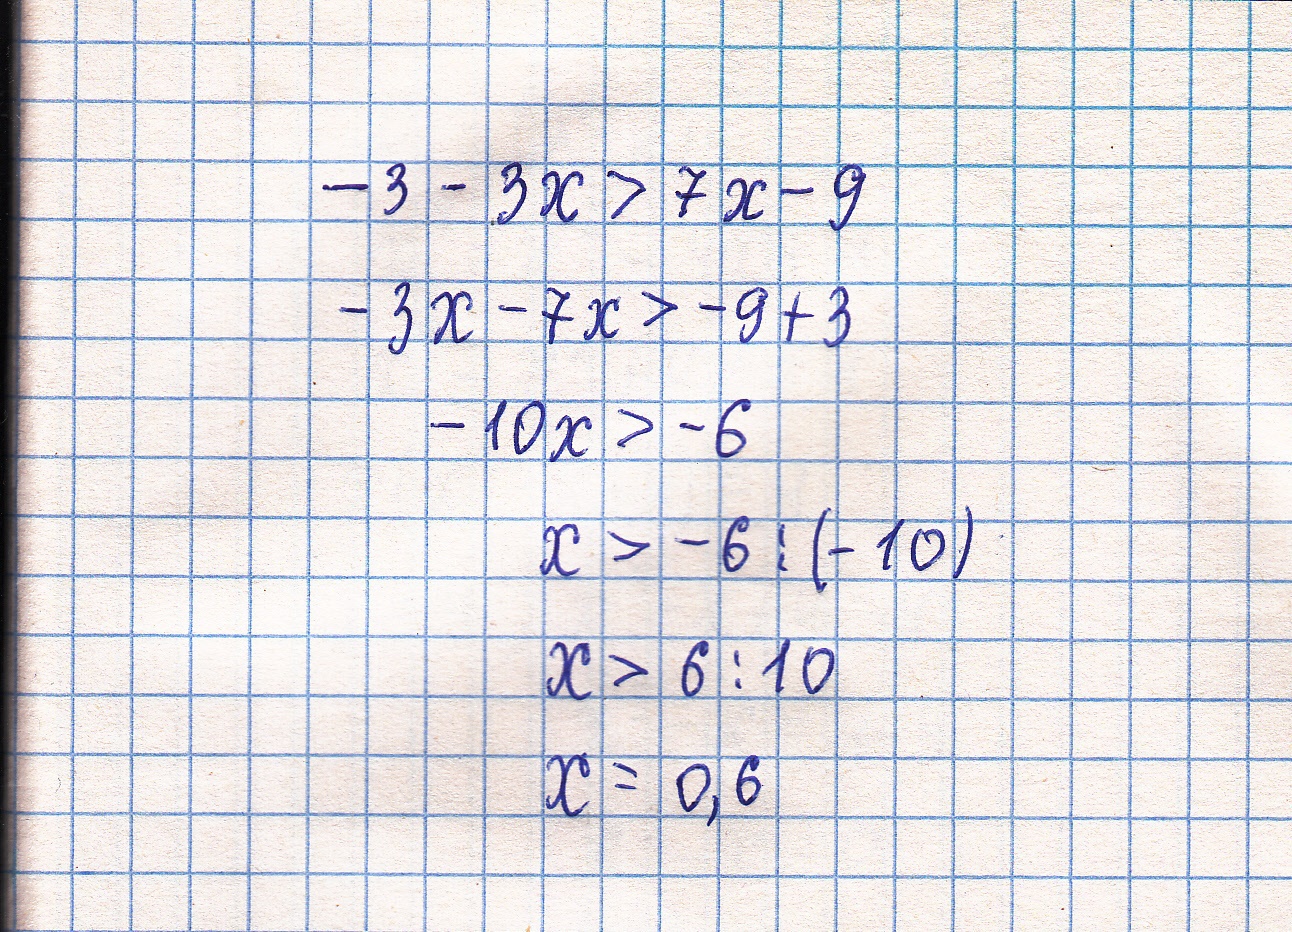 -3 - 3x > 7x - 9
-3x - 7x > -9 + 3
-10x > -6
x > -6 : (-10)
x > 6 : 10
x = 0,6